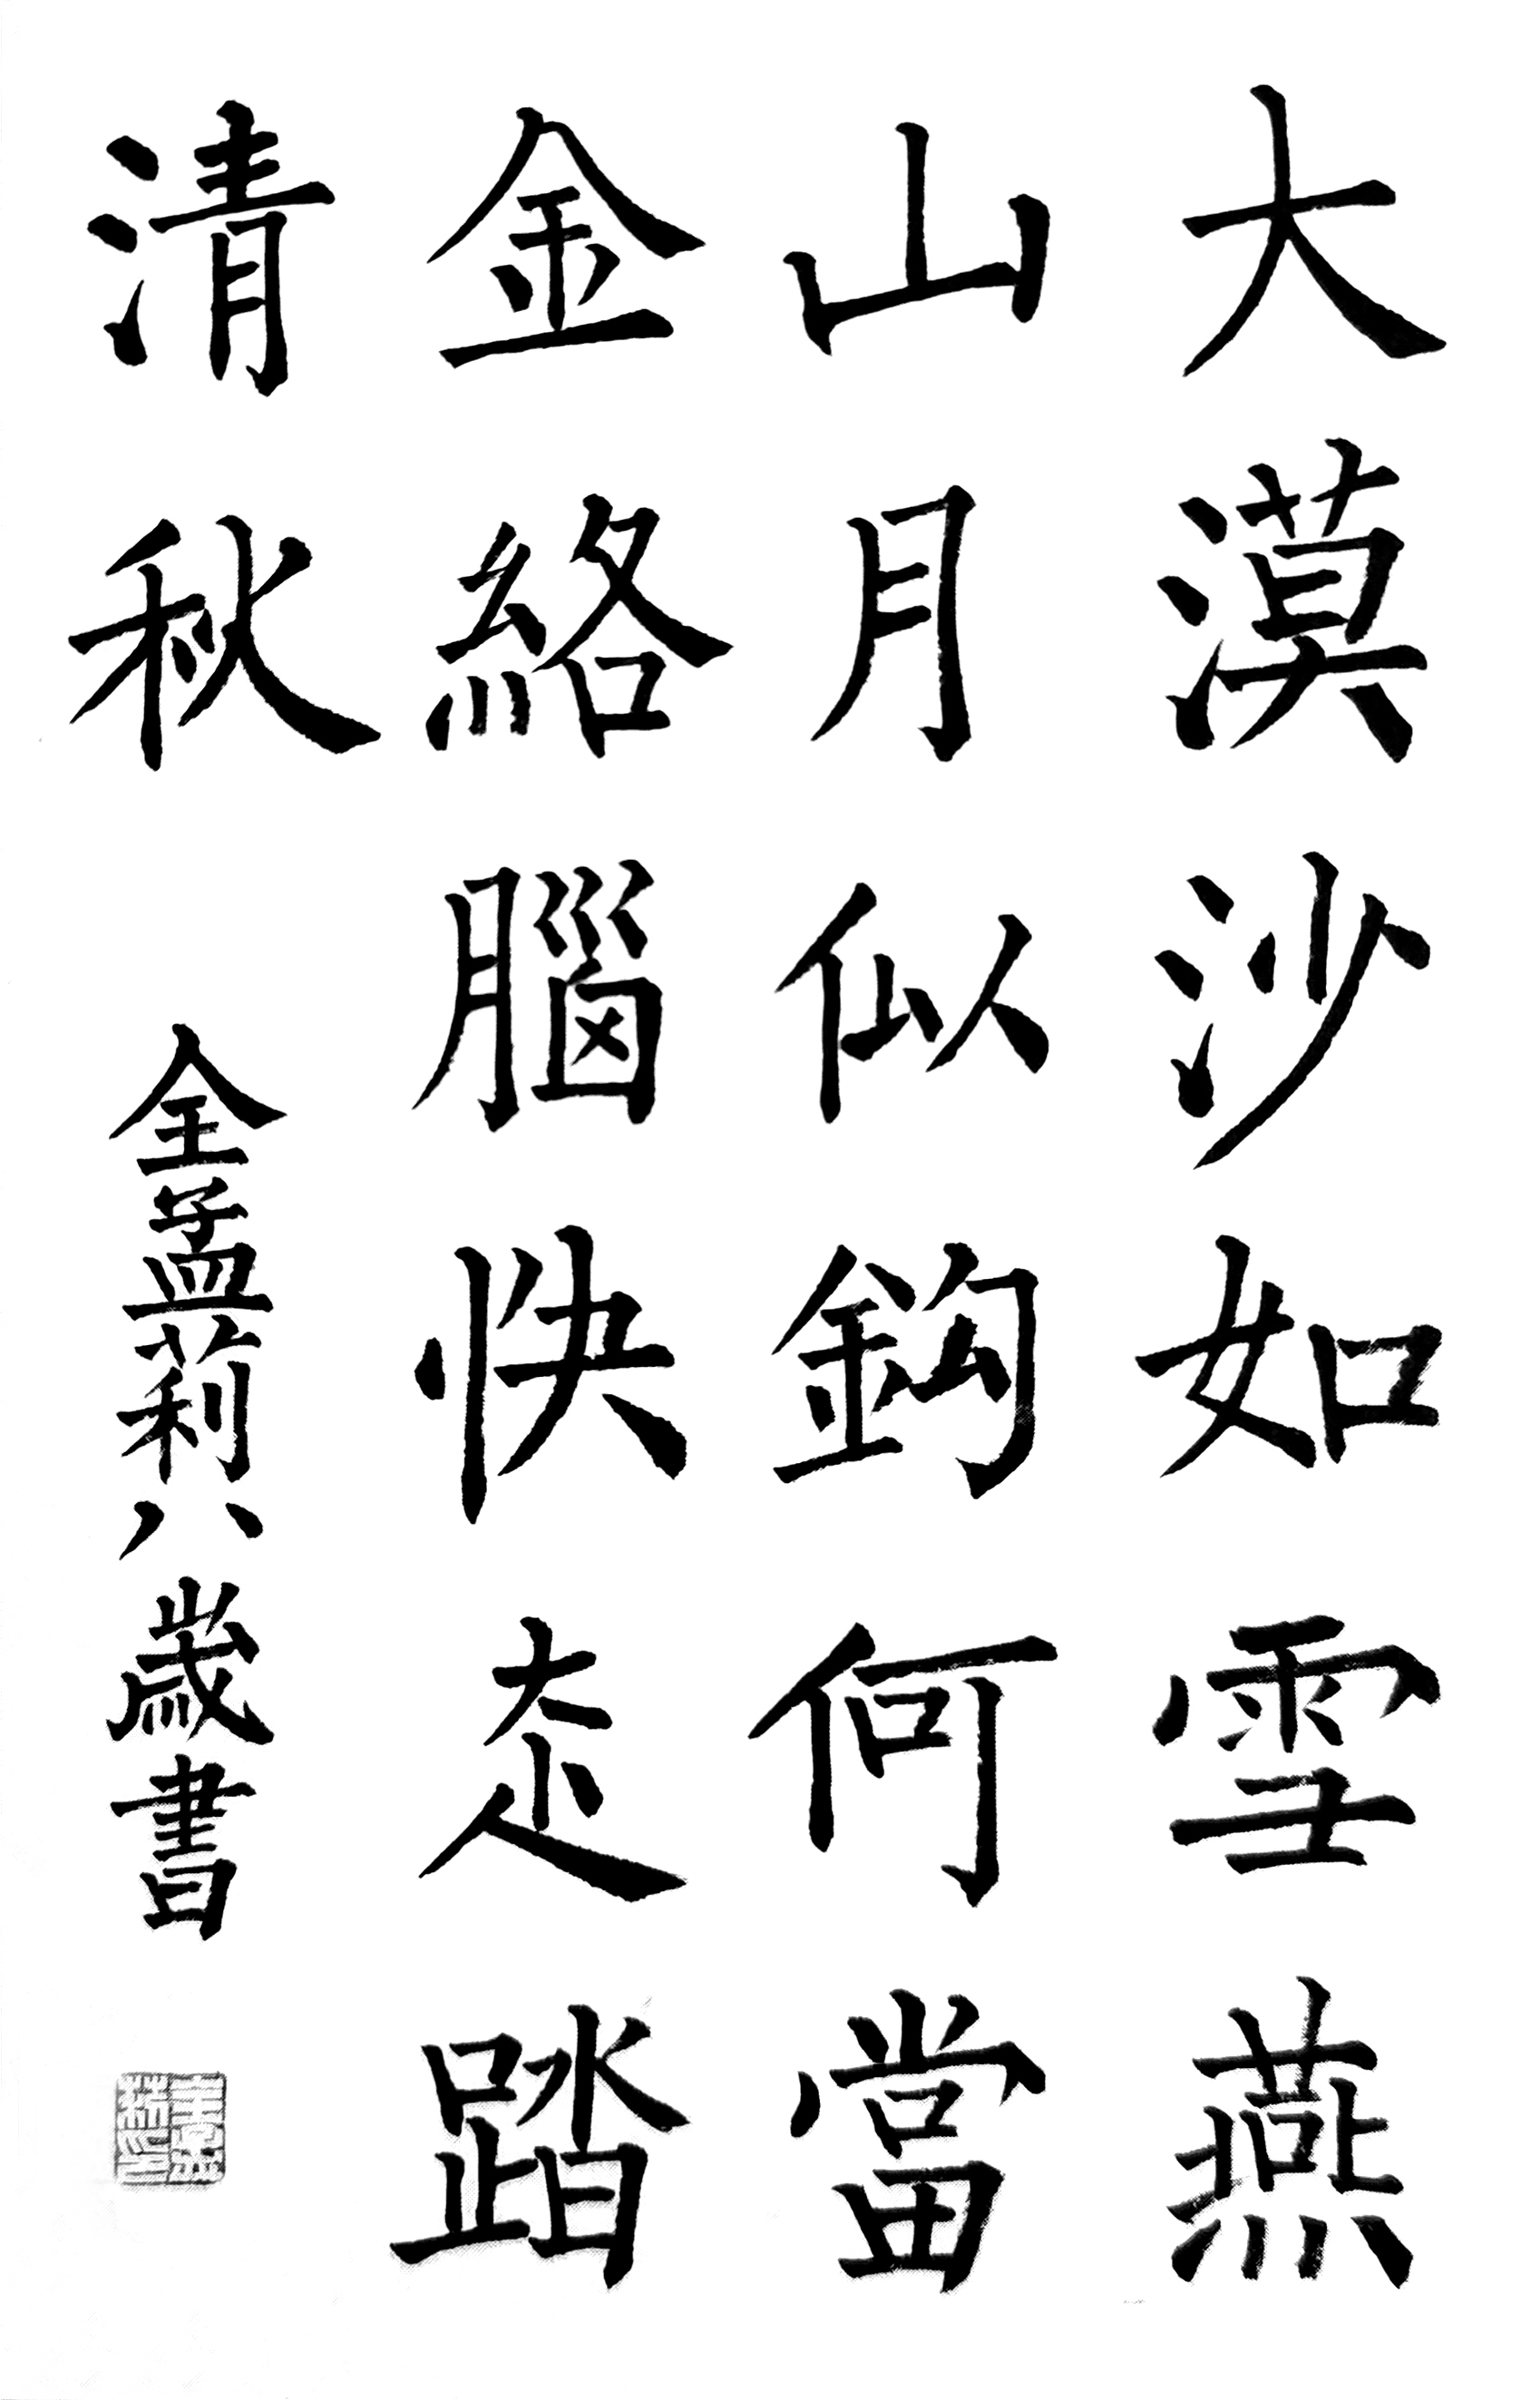 大漠沙如雪燕
山月似鈎何當
金絡腦快走踏
清秋
全孟莉八歲書